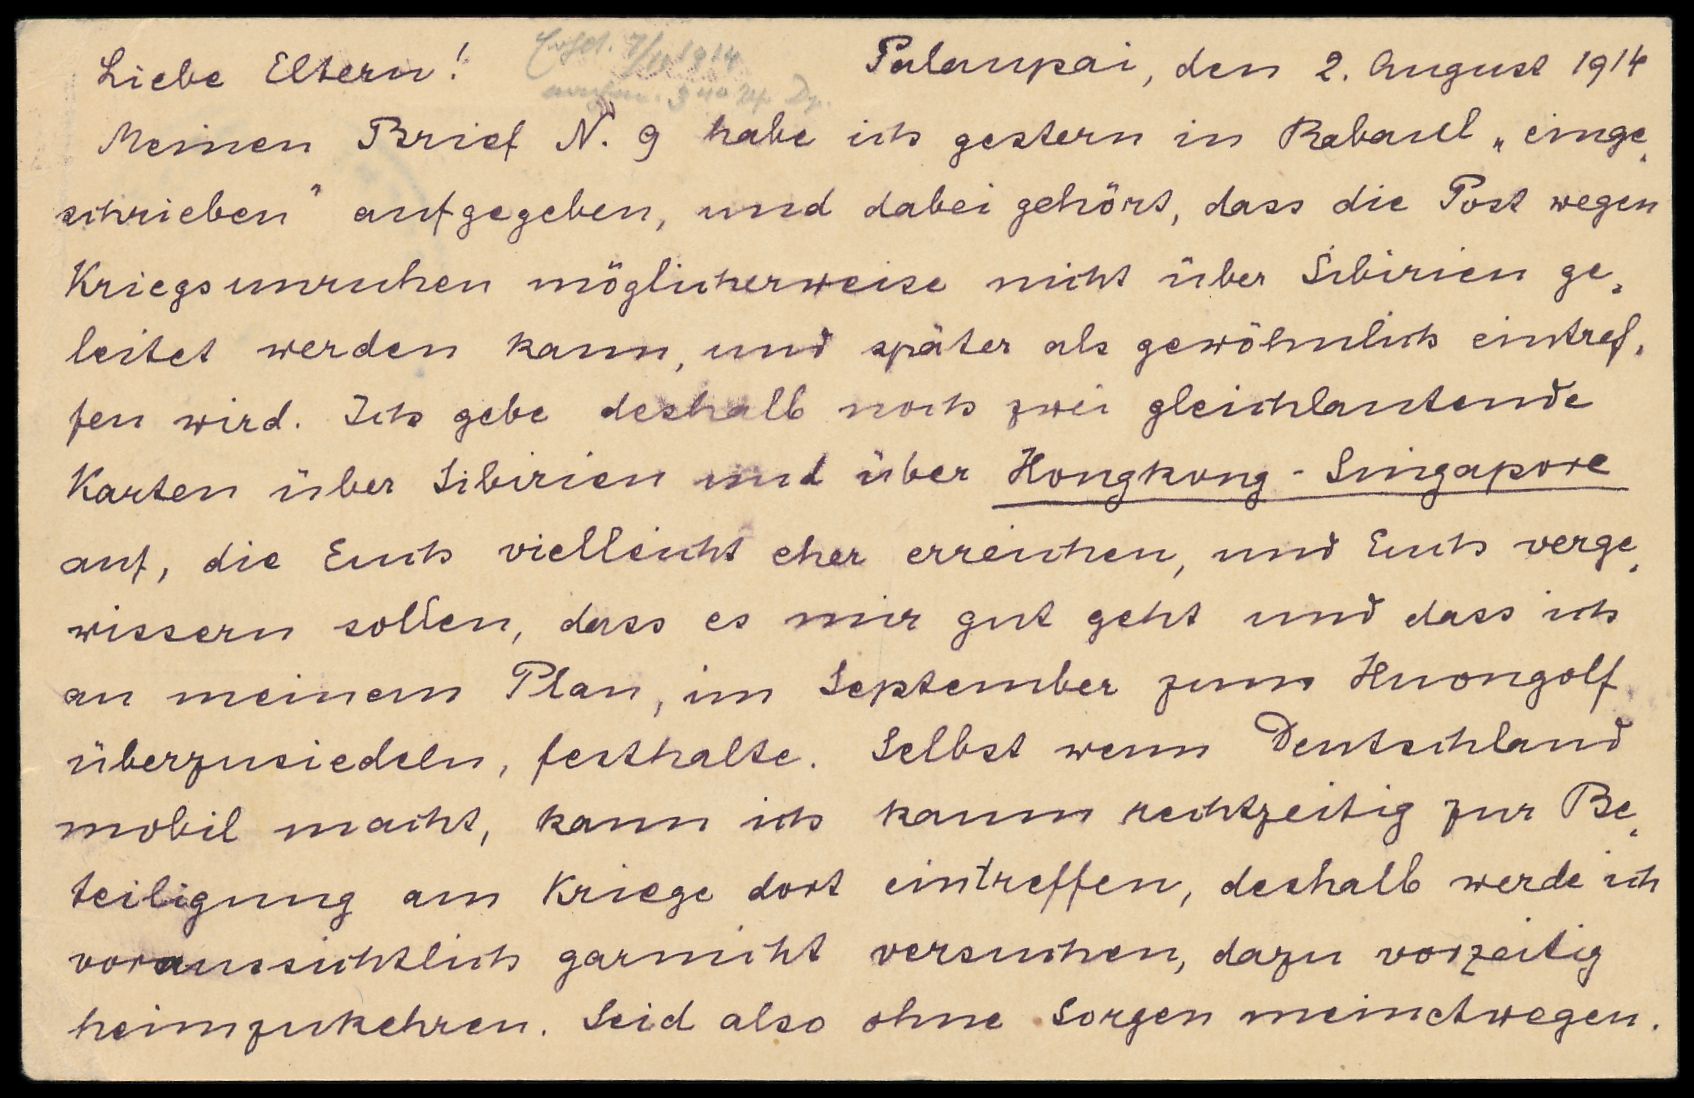 Liebe Eltern! Palaupai, den 2. August 1914
Meinen Brief N. 9 habe ich gestern in Rabaul „einge-
schrieben" aufgegeben, und dabei gehört, dass die Post wegen
Kriegsunruhen möglicherweise nicht über Sibirien ge-
leitet werden kann, und später als gewöhnlich eintref-
fen wird. Ich gebe deshalb noch zwei gleichlautende
Karten über Sibirien und über Hongkong - Singapore
auf, die Euch vielleicht eher erreichen, und Euch verge-
wissern sollen, dass es mir gut geht und dass ich
an meinem Plan, im September zum Huongolf
überzusiedeln, festhalte. Selbst wenn Deutschland
mobil macht, kann ich kaum rechtzeitig zur Be-
teiligung am Kriege dort eintreffen, deshalb werde ich
voraussichtlich garnicht versuchen, dazu vorzeitig
heimzukehren. Seid also ohne Sorgen meinetwegen.